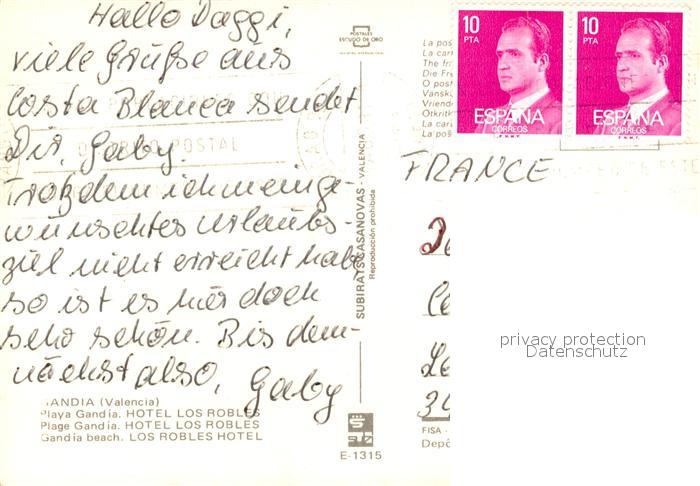 Hallo Daggi,
viele Grüße aus
Costa Blanca sendet
Dir, Gaby.
Trotzdem ich mein ge-
wünschtes Urlaubs-
ziel nicht erreicht habe
so ist es hier doch
sehr schön. Bis dem-
nächst also, Gaby
GANDIA (Valencia)
Playa Gandia. HOTEL LOS ROBLES
Plage Gandia. HOTEL LOS ROBLES
Gandia beach. LOS ROBLES HOTEL
POSTALES
ESCUDO DE ORO
SUBIRATS CASANOVAS - VALENCIA
Reproducción prohibida
E-1315
10
PTA
ESPAÑA
CORREOS
F.N.M.T.
10
PTA
ESPAÑA
CORREOS
F.N.M.T.
La pos
La car
The fr
Die Fr
O post
Vansk
Vriend
Otkrit
La cari
La pos
POSTAL
FRANCE
privacy protection
Datenschutz
FISA -
Depó